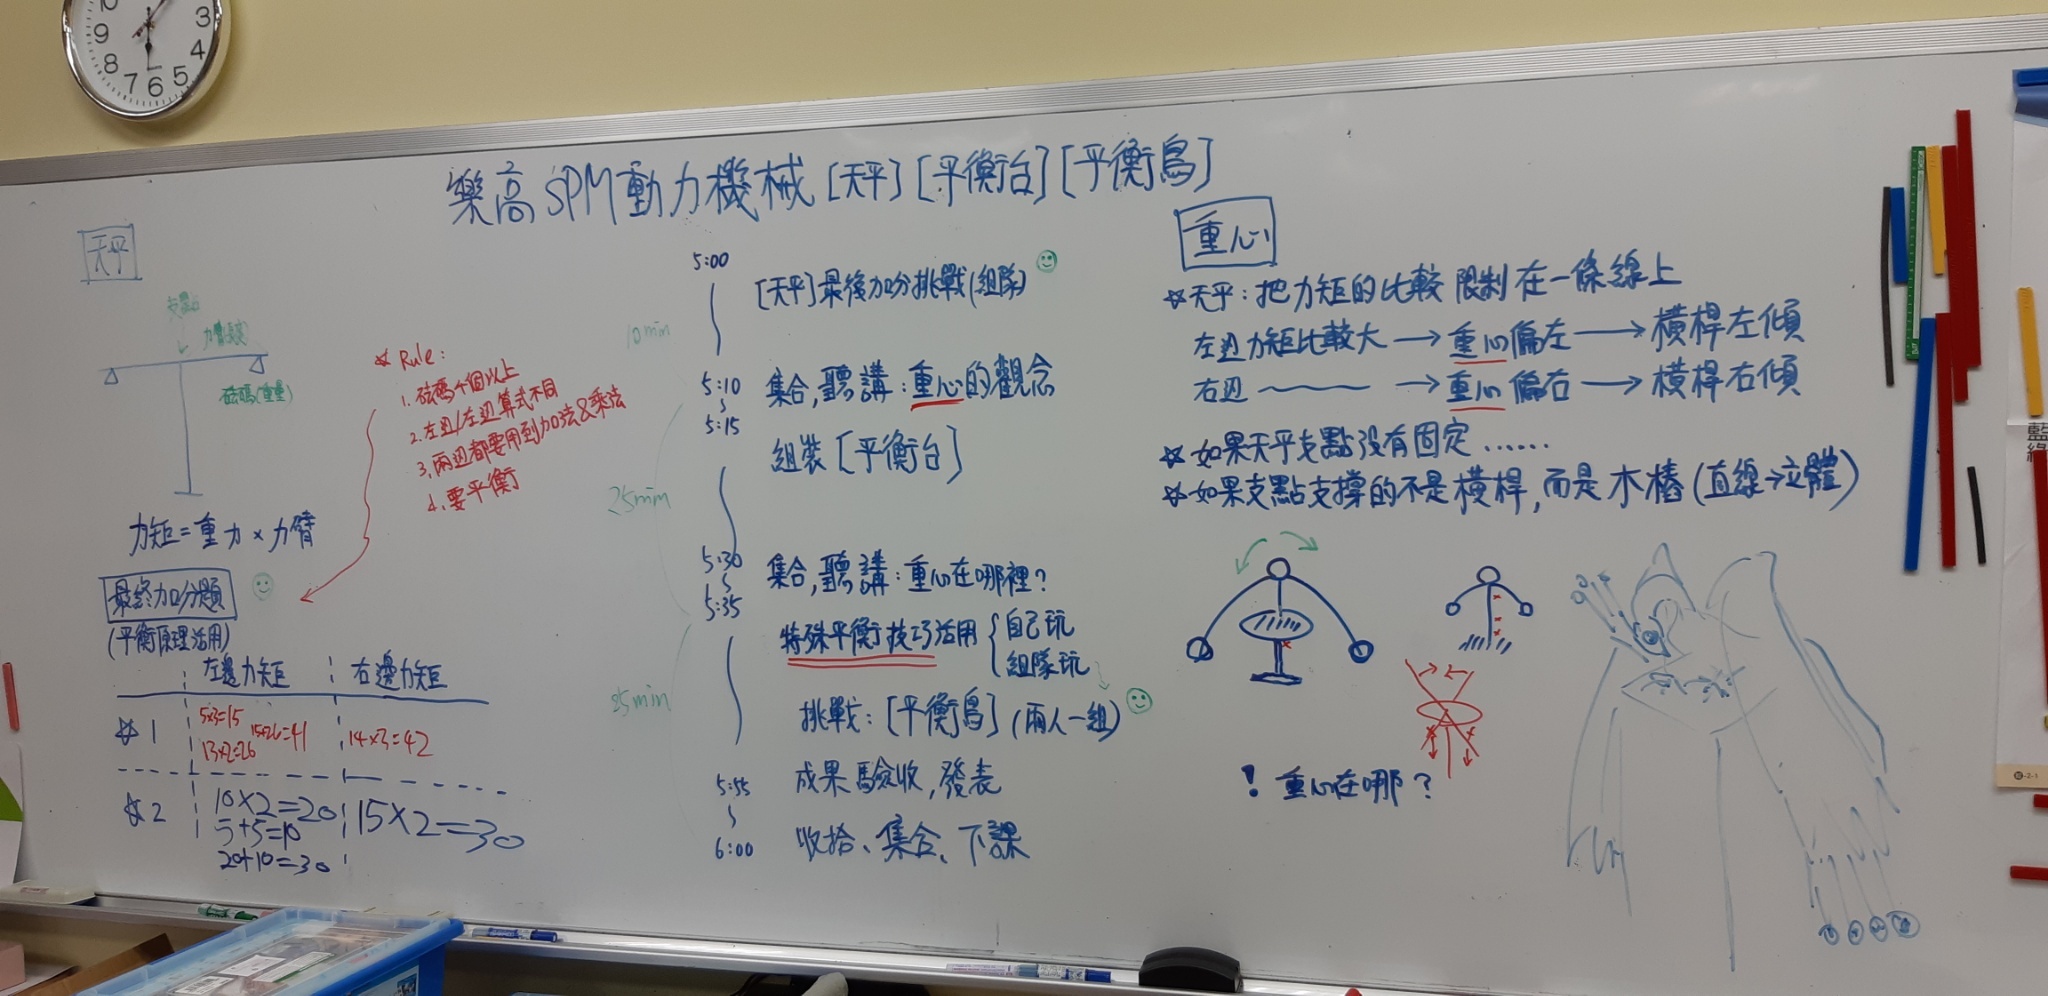 樂高SPM動力機械[天平][平衡台][平衡鳥]
天平
支點
力臂(長度)
砝碼(重量)
力矩=重力×力臂
☆ Rule:
1. 砝碼個以上
2. 左边/左边算式不同
3. 兩边都要用到加法&乘法
4. 要平衡
最終加分題
(平衡原理活用)
左邊力矩 右邊力矩
☆1
5×3=15
15+26=41
13×2=26
14×3=42
☆2
10×2=20
5+5=10
20+10=30
15×2=30
5:00
[天平]最後加分挑戰(組隊)
10min
5:10
5:15
集合,聽講:重心的觀念
組裝[平衡台]
25min
5:30
5:35
集合,聽講:重心在哪裡?
特殊平衡技巧活用
自己玩
組隊玩
25min
挑戰:[平衡鳥](兩人一組)
5:55
成果驗收,發表
6:00
收拾、集合、下課
重心
☆天平:把力矩的比較限制在一條線上
左边力矩比較大→重心偏左→橫桿左傾
右边 → 重心偏右→橫桿右傾
☆如果天平支點沒有固定……
☆如果支點支撐的不是橫桿,而是木樁(直線→立體)
! 重心在哪?
10
2
3
4
5
6
7
8
藍
綠
⑩-2-1